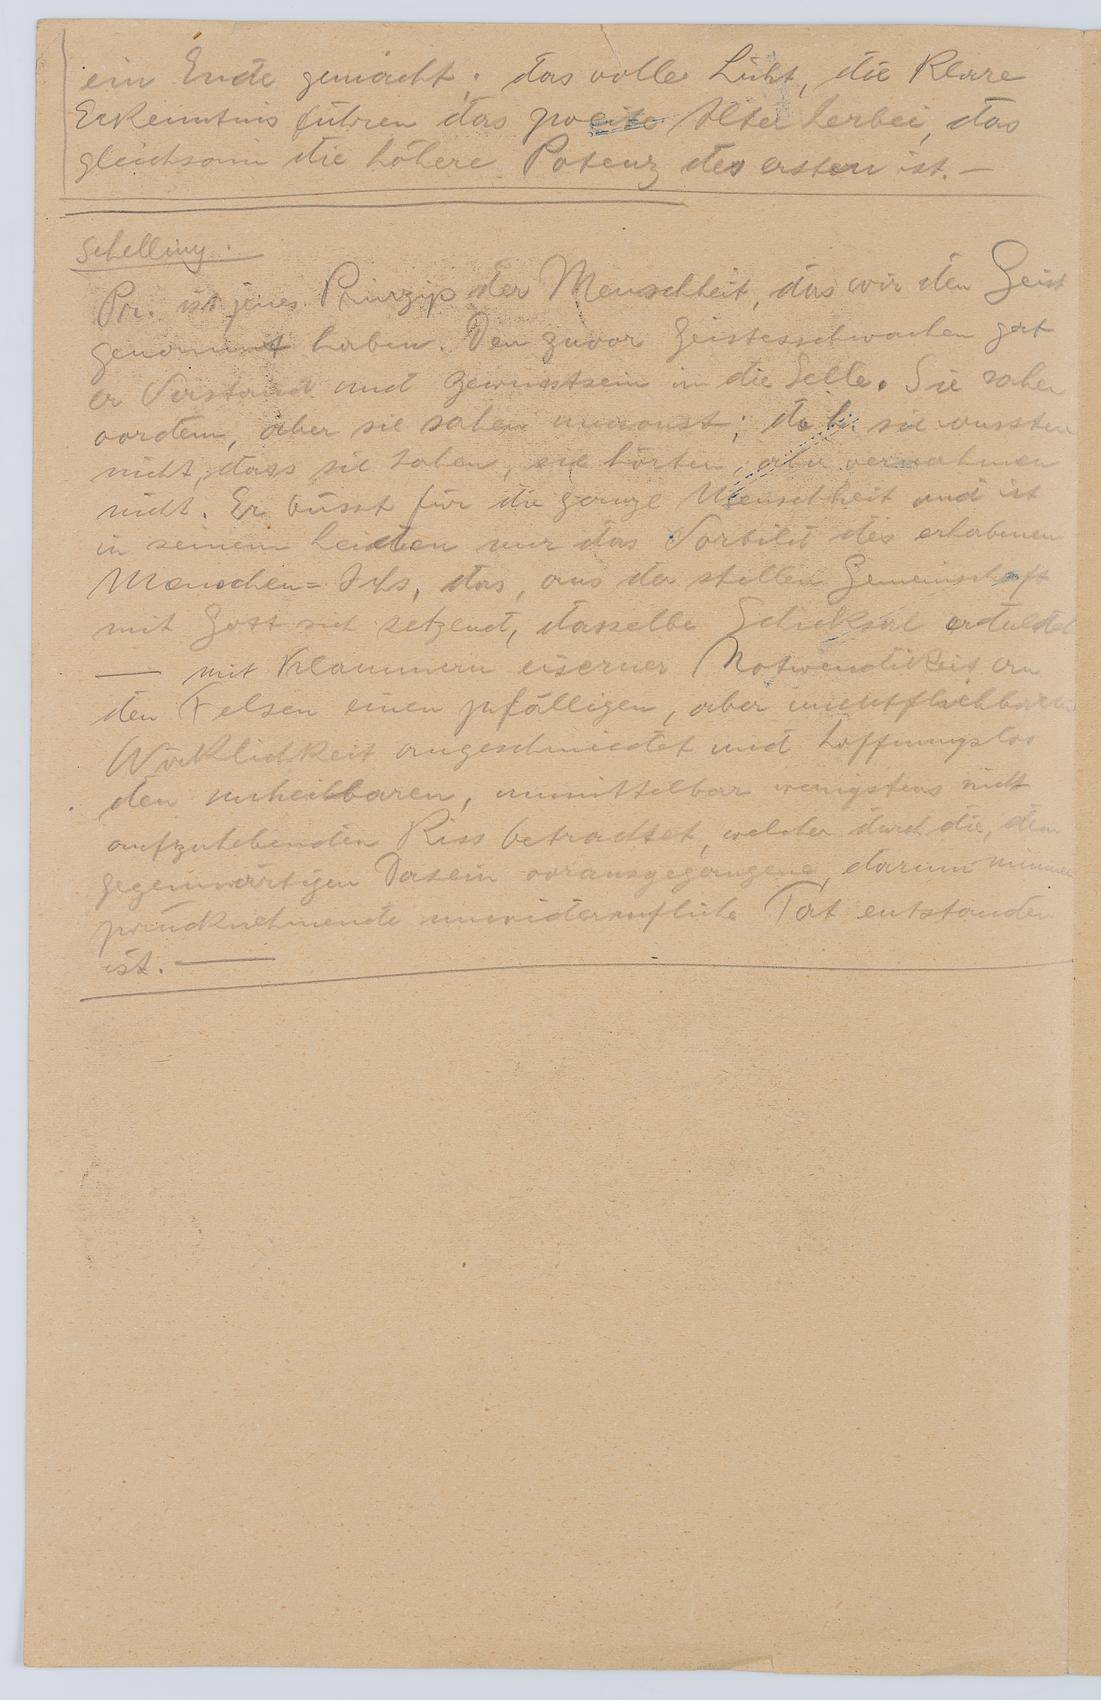 ein Ende gemacht; das volle Licht, die klare
Erkenntnis führen das zweite Alter herbei, das
gleichsam die höhere Potenz des ersten ist. —
Schelling.
Pr. ist jenes Prinzip der Menschheit, das wir den Geist
genannt haben. Den zuvor Geistesschwachen gab
er Verstand und Bewusstsein in die Selle. Sie sahen
vordem, aber sie sahen umsonst; d.h. sie wussten
nicht, dass sie sahen, sie hörten, aber vernahmen
nicht. Er büsst für die ganze Menschheit und ist
in seinem Leiden nur das Vorbild des erhabenen
Menschen=Ichs, das, aus der stillen Gemeinschaft
mit Gott sich setzend, dasselbe Schicksal erduldet
— mit Klammern eiserner Notwendikeit an
den Felsen einen zufälligen, aber unentfliehbaren
Wirklichkeit angeschmiedet und hoffnungslos
den unheilbaren, unmittelbar wenigstens nicht
aufzuhebenden Riss betrachtet, welcher durch die, dem
gegenwärtigen Dasein vorausgegangene, darum nimmer
zurücknehmende unwiderrufliche Tat entstanden
ist. —